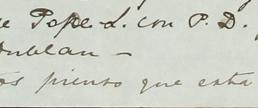 Pope L. con P. D.
Dublan —
os pienso que esta